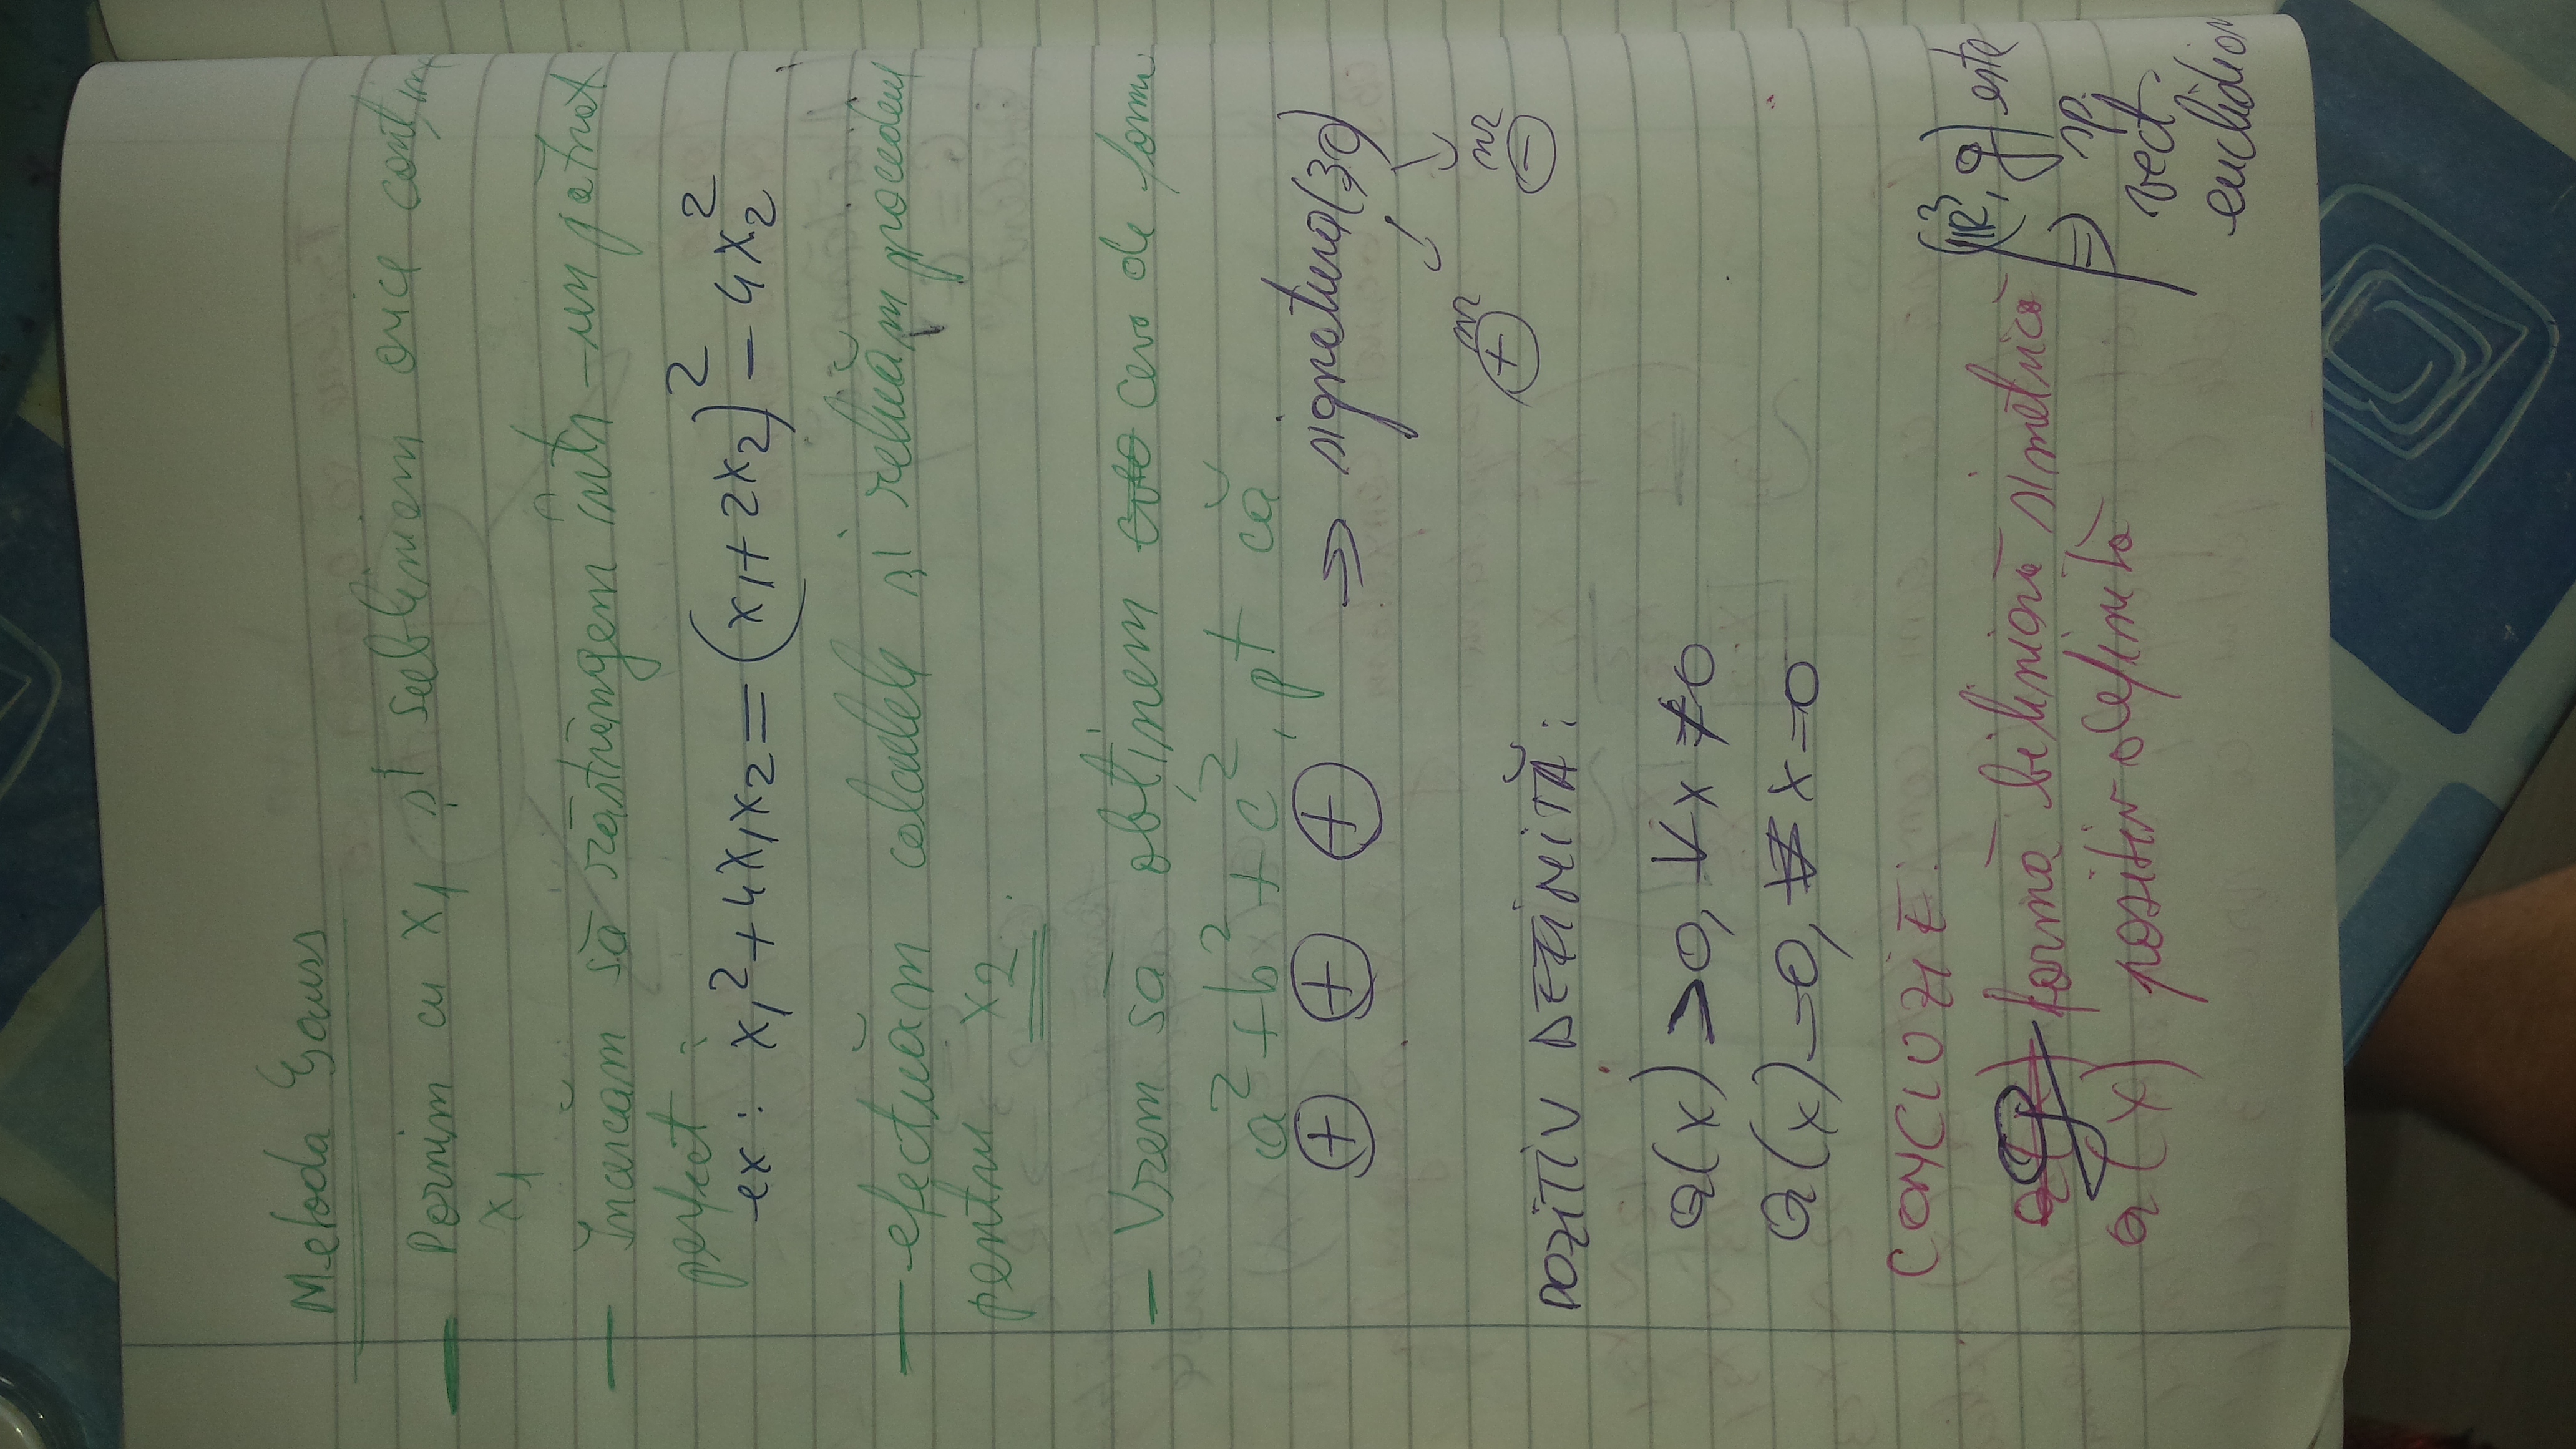 Metoda Gauss
— Pornim cu x₁ și subliniem orice conține
x₁
— Încercăm să răstrângem într-un pătrat
perfect :
ex : x₁² + 4x₁x₂ = (x₁ + 2x₂)² - 4x₂²
— efectuăm și reluăm procedeul
pentru x₂.
— Vrem să obținem ceva de forma
a² + b² + c², pt că
⊕ ⊕ ⊕ => signatura (3,0)
nr nr
⊕ ⊖
POZITIV DEFINITĂ :
Q(x) > 0, ∀x ≠ 0
Q(x) = 0, x = 0
CONCLUZIE :
g formă biliniară simetrică
Q(x) pozitiv definită
=> (ℝ³, g) este
sp.
vect.
euclidian